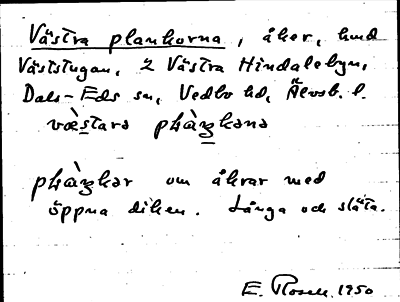 Västra plankorna, åker, hmd
Väststugan, 2 Västra Hindalebyn,
Dals-Eds sn, Vedbo hd, Älvsb. l.
væ̀stara plàŋkəna
plàŋkər om åkrar med
öppna diken. Långa och släta.
E. Rosell 1950